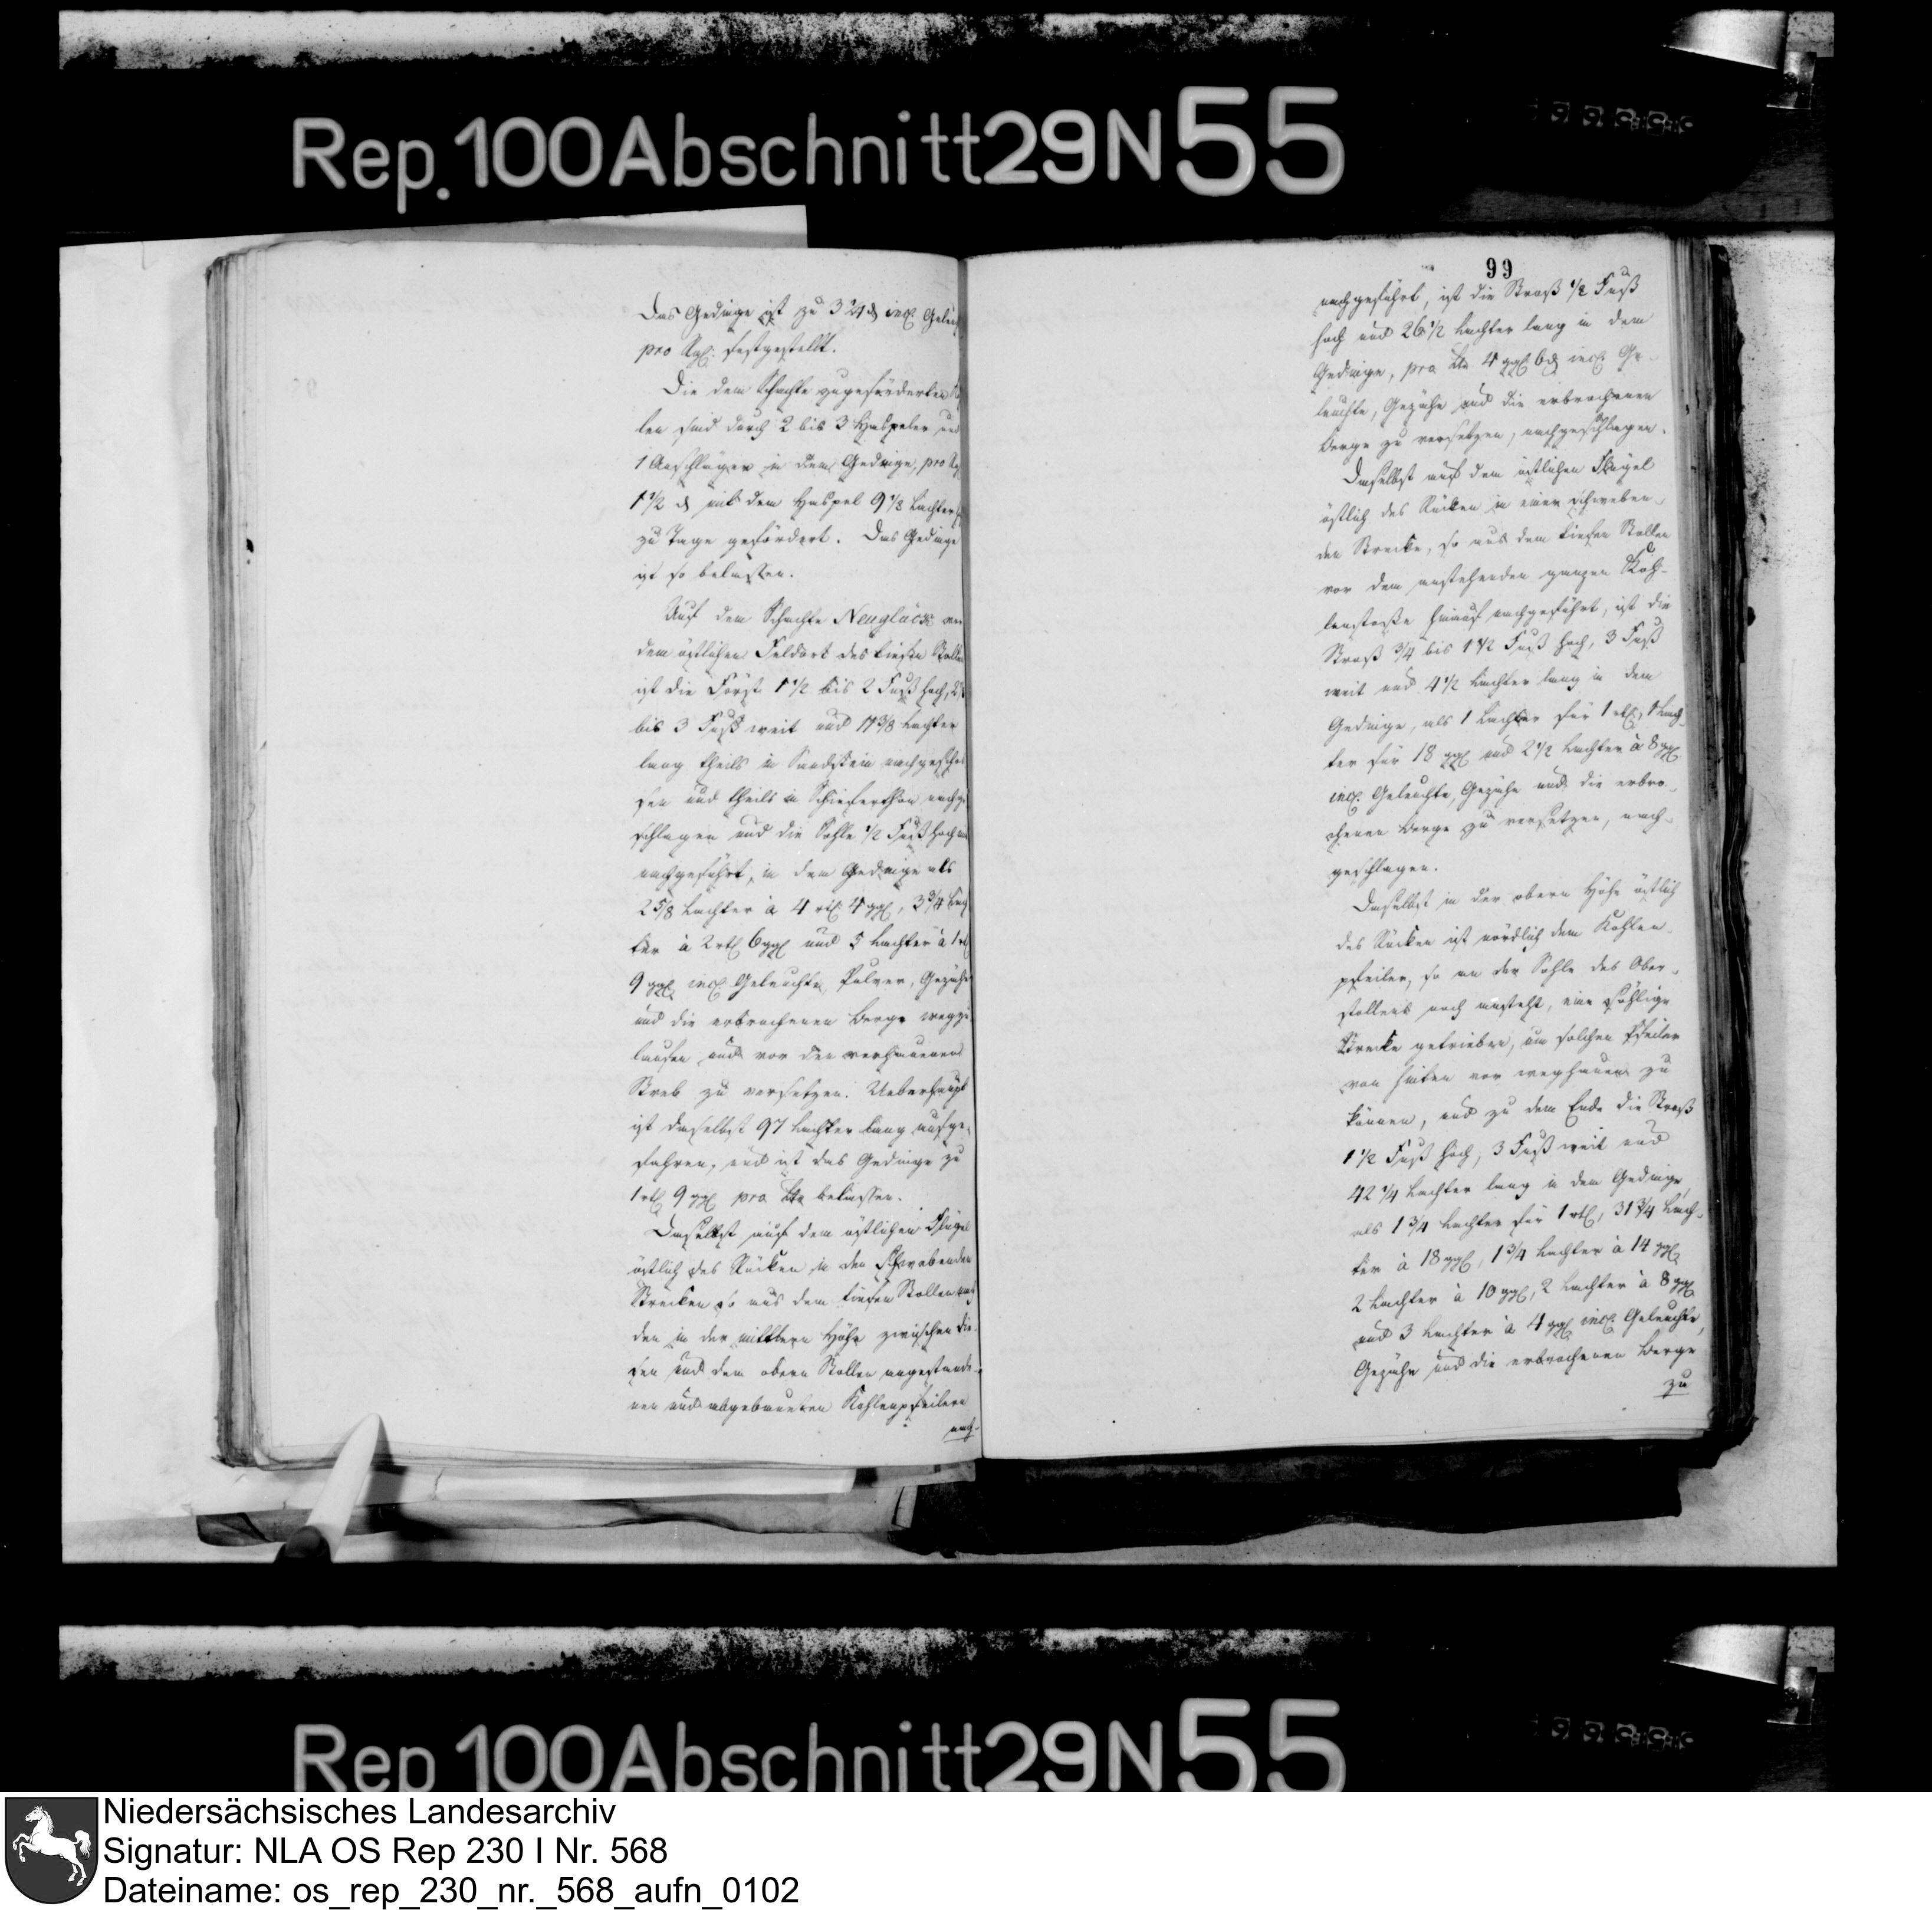 Rep. 100 Abschnitt 29 N 55
Das Gedinge ist zu 3 ¾ ₰ incl. Geleuch
pro festgestellt.
Die dem Schachte zugeförderten
len sind durch 2 bis 3 Haspeler und
1 Anschläger in dem Gedinge, pro
1 ½ ₰ mit dem Haspel 9 ⅓ Lachter
zu Tage gefördert. Das Gedinge
ist so belassen.
Auf dem Schachte Neuglück vor
dem östlichen Feldort des tiefen Stollen
ist die Förste 1 ½ bis 2 Fuß hoch,
bis 3 Fuß weit und 11 ⅜ Lachter
lang theils in Sandstein nachgeschos
sen und theils in Schieferthon nachge
schlagen und die Sohle ½ Fuß hoch
nachgeführt, in dem Gedinge als
2 ⅝ Lachter à 4 rtl. 4 ggl, 3 ¾ Lach
ter à 2 rtl 6 ggl und 5 Lachter à 1 rtl
9 ggl incl. Geleuchte, Pulver, Gezähe
und die erbrochenen Berge wegzu
laufen und vor den verhauenen
Streb zu versetzen. Ueberhaupt
ist daselbst 97 Lachter lang aufge-
fahren, und ist das Gedinge zu
1 rtl 9 ggl pro Ltr belassen.
Daselbst auf dem östlichen Flügel
östlich des Rücken in den schwebenden
Strecken so aus dem tiefen Stollen nach
den in der mittlern Höhe zwischen die-
sen und dem obern Stollen angestande-
nen und abgebaueten Kohlenpfeilern
nach-
99
nachgeführt, ist die Straß ½ Fuß
hoch und 26 ½ Lachter lang in dem
Gedinge, pro Ltr 4 ggl 6 ₰ incl. Ge-
leuchte, Gezähe und die erbrochenen
Berge zu versetzen, nachgeschlagen.
Daselbst auf dem östlichen Flügel
östlich des Rücken in einer schweben-
den Strecke, so aus dem tiefen Stollen
vor dem anstehenden ganzen Koh-
lenstoße hinauf nachgeführt, ist die
Straß ¾ bis 1 ½ Fuß hoch, 3 Fuß
weit und 4 ½ Lachter lang in dem
Gedinge, als 1 Lachter für 1 rtl, 1 Lach-
ter für 18 ggl und 2 ½ Lachter à 8 ggl
incl. Geleuchte, Gezähe und die erbro-
chenen Berge zu versetzen, nach-
geschlagen.
Daselbst in der obern Höhe östlich
des Rücken ist nördlich dem Kohlen-
pfeiler, so an der Sohle des Ober-
stollens noch ansteht, eine söhlige
Strecke getrieben, um solchen Pfeiler
von hinten vor weghauen zu
können, und zu dem Ende die Straß
1 ½ Fuß hoch, 3 Fuß weit und
42 ¼ Lachter lang in dem Gedinge,
als 1 ¾ Lachter für 1 rtl, 31 ¾ Lach-
ter à 18 ggl, 1 ¾ Lachter à 14 ggl,
2 Lachter à 10 ggl, 2 Lachter à 8 ggl
und 3 Lachter à 4 ggl incl. Geleuchte,
Gezähe und die erbrochenen Berge
zu
Rep 100 Abschnitt 29 N 55
Niedersächsisches Landesarchiv
Signatur: NLA OS Rep 230 I Nr. 568
Dateiname: os_rep_230_nr._568_aufn_0102